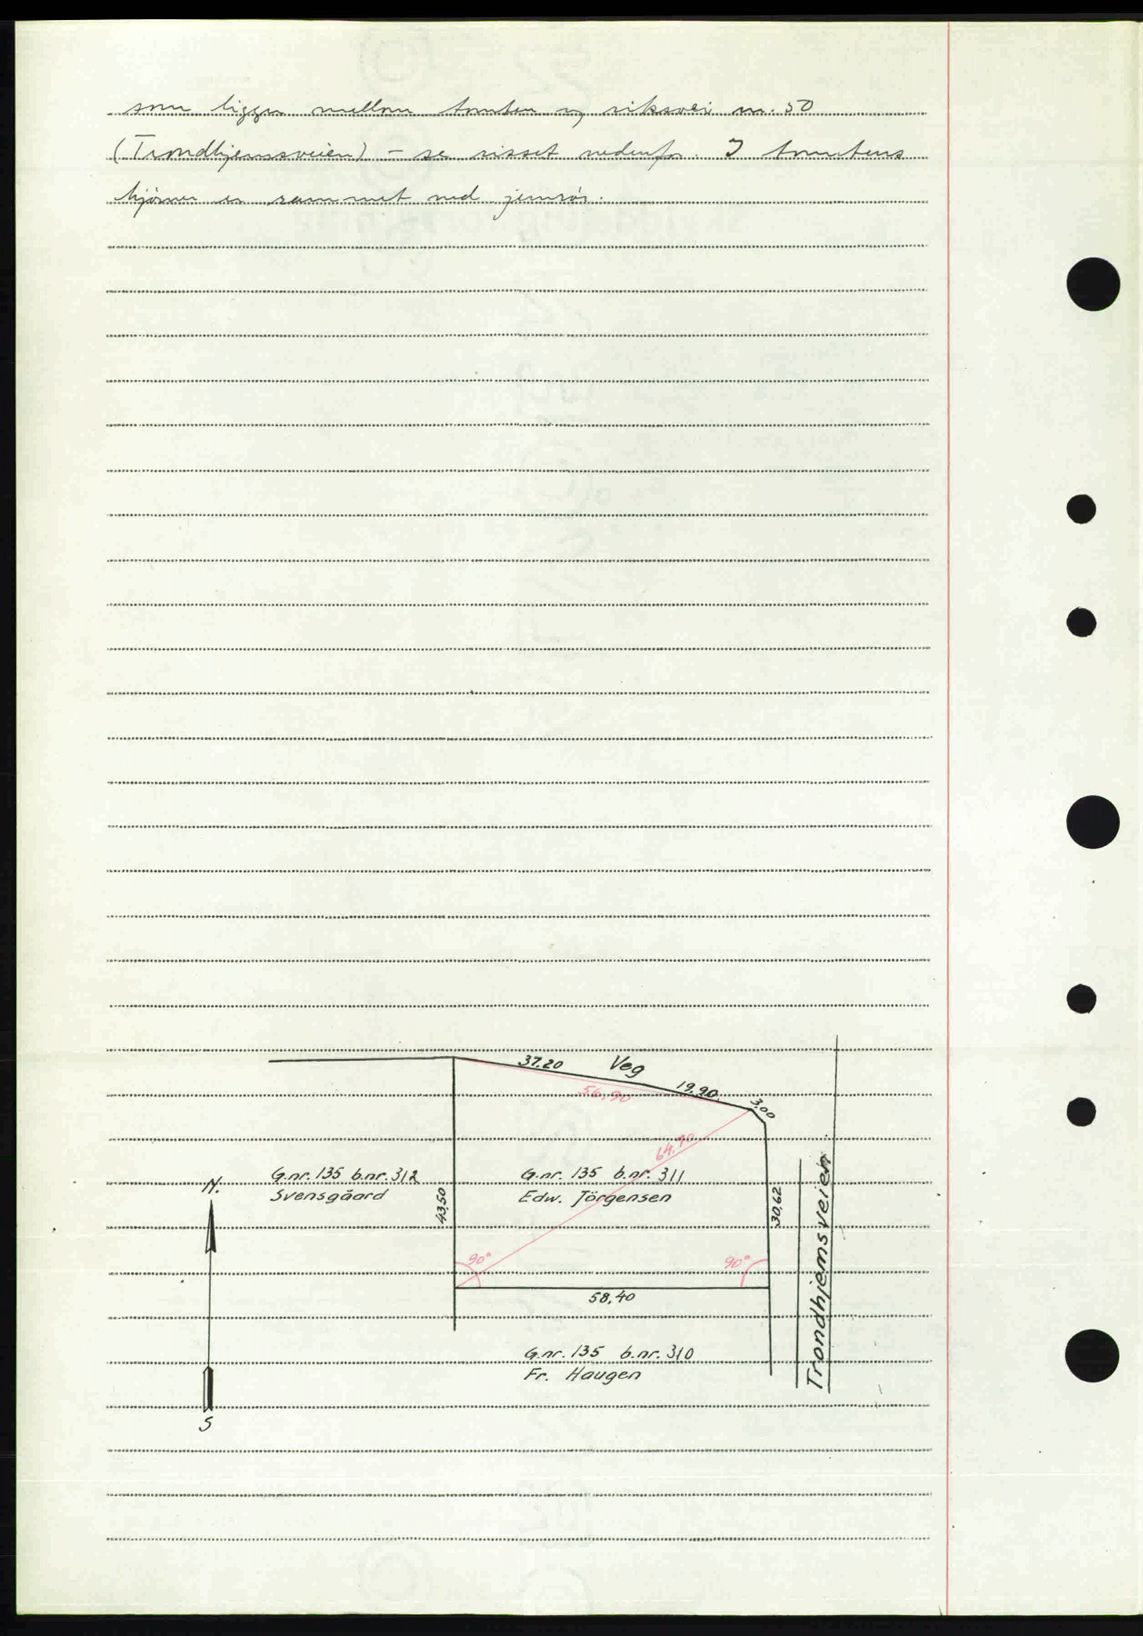 som ligger mellom tomten og riksvei nr. 50
(Trondhjemsveien) – se risset nedenfor. I tomtens
hjørner er rammet ned jernrør.
37.20 Veg
56,90
19.90
3.00
64.70
N.
G.nr. 135 b.nr. 312
Svensgård
43,50
G.nr. 135 b.nr. 311
Edw. Jörgensen
30,62
Trondhjemsveien
90°
90°
58,40
G.nr. 135 b.nr. 310
Fr. Haugen
S